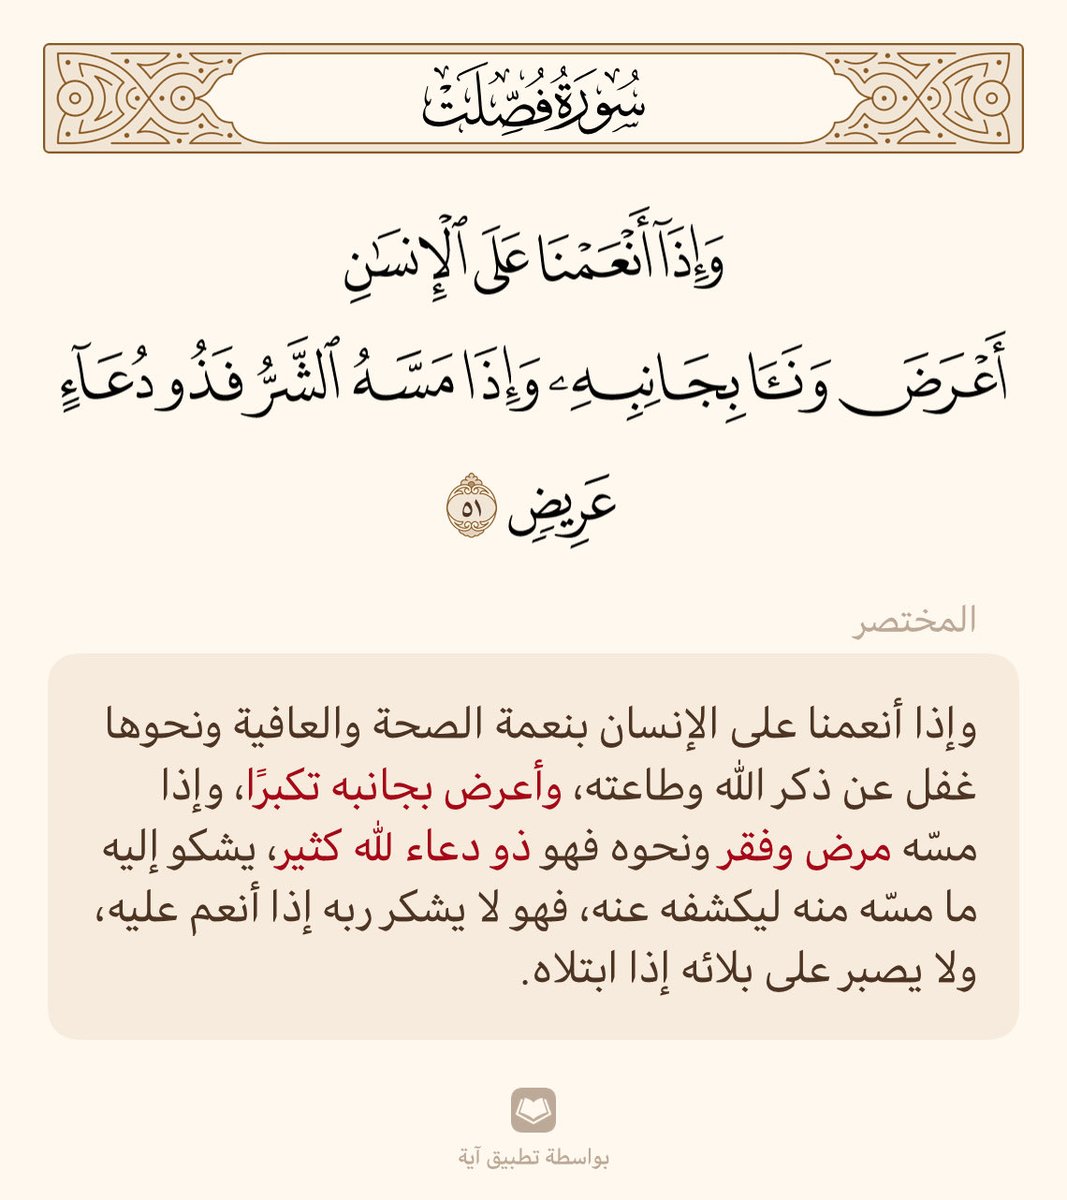 سُورَةُ فُصِّلَتْ
وَإِذَآ أَنْعَمْنَا عَلَى ٱلْإِنسَٰنِ
أَعْرَضَ وَنَـَٔا بِجَانِبِهِۦ وَإِذَا مَسَّهُ ٱلشَّرُّ فَذُو دُعَآءٍ
عَرِيضٍ ٥١
المختصر
وإذا أنعمنا على الإنسان بنعمة الصحة والعافية ونحوها
غفل عن ذكر الله وطاعته، وأعرض بجانبه تكبرًا، وإذا
مسّه مرض وفقر ونحوه فهو ذو دعاء لله كثير، يشكو إليه
ما مسّه منه ليكشفه عنه، فهو لا يشكر ربه إذا أنعم عليه،
ولا يصبر على بلائه إذا ابتلاه.
بواسطة تطبيق آية